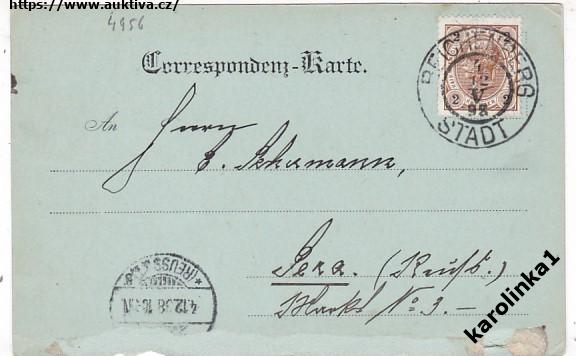 https://www.auktiva.cz/
4956
Correspondenz-Karte.
2 2
REICHENBERG
STADT
V
98
An Herrn
E. Schumann,
Gera. (Reuß.)
Markt No 3.-
(REUSS J.L.)
4.12.98
karolinka1